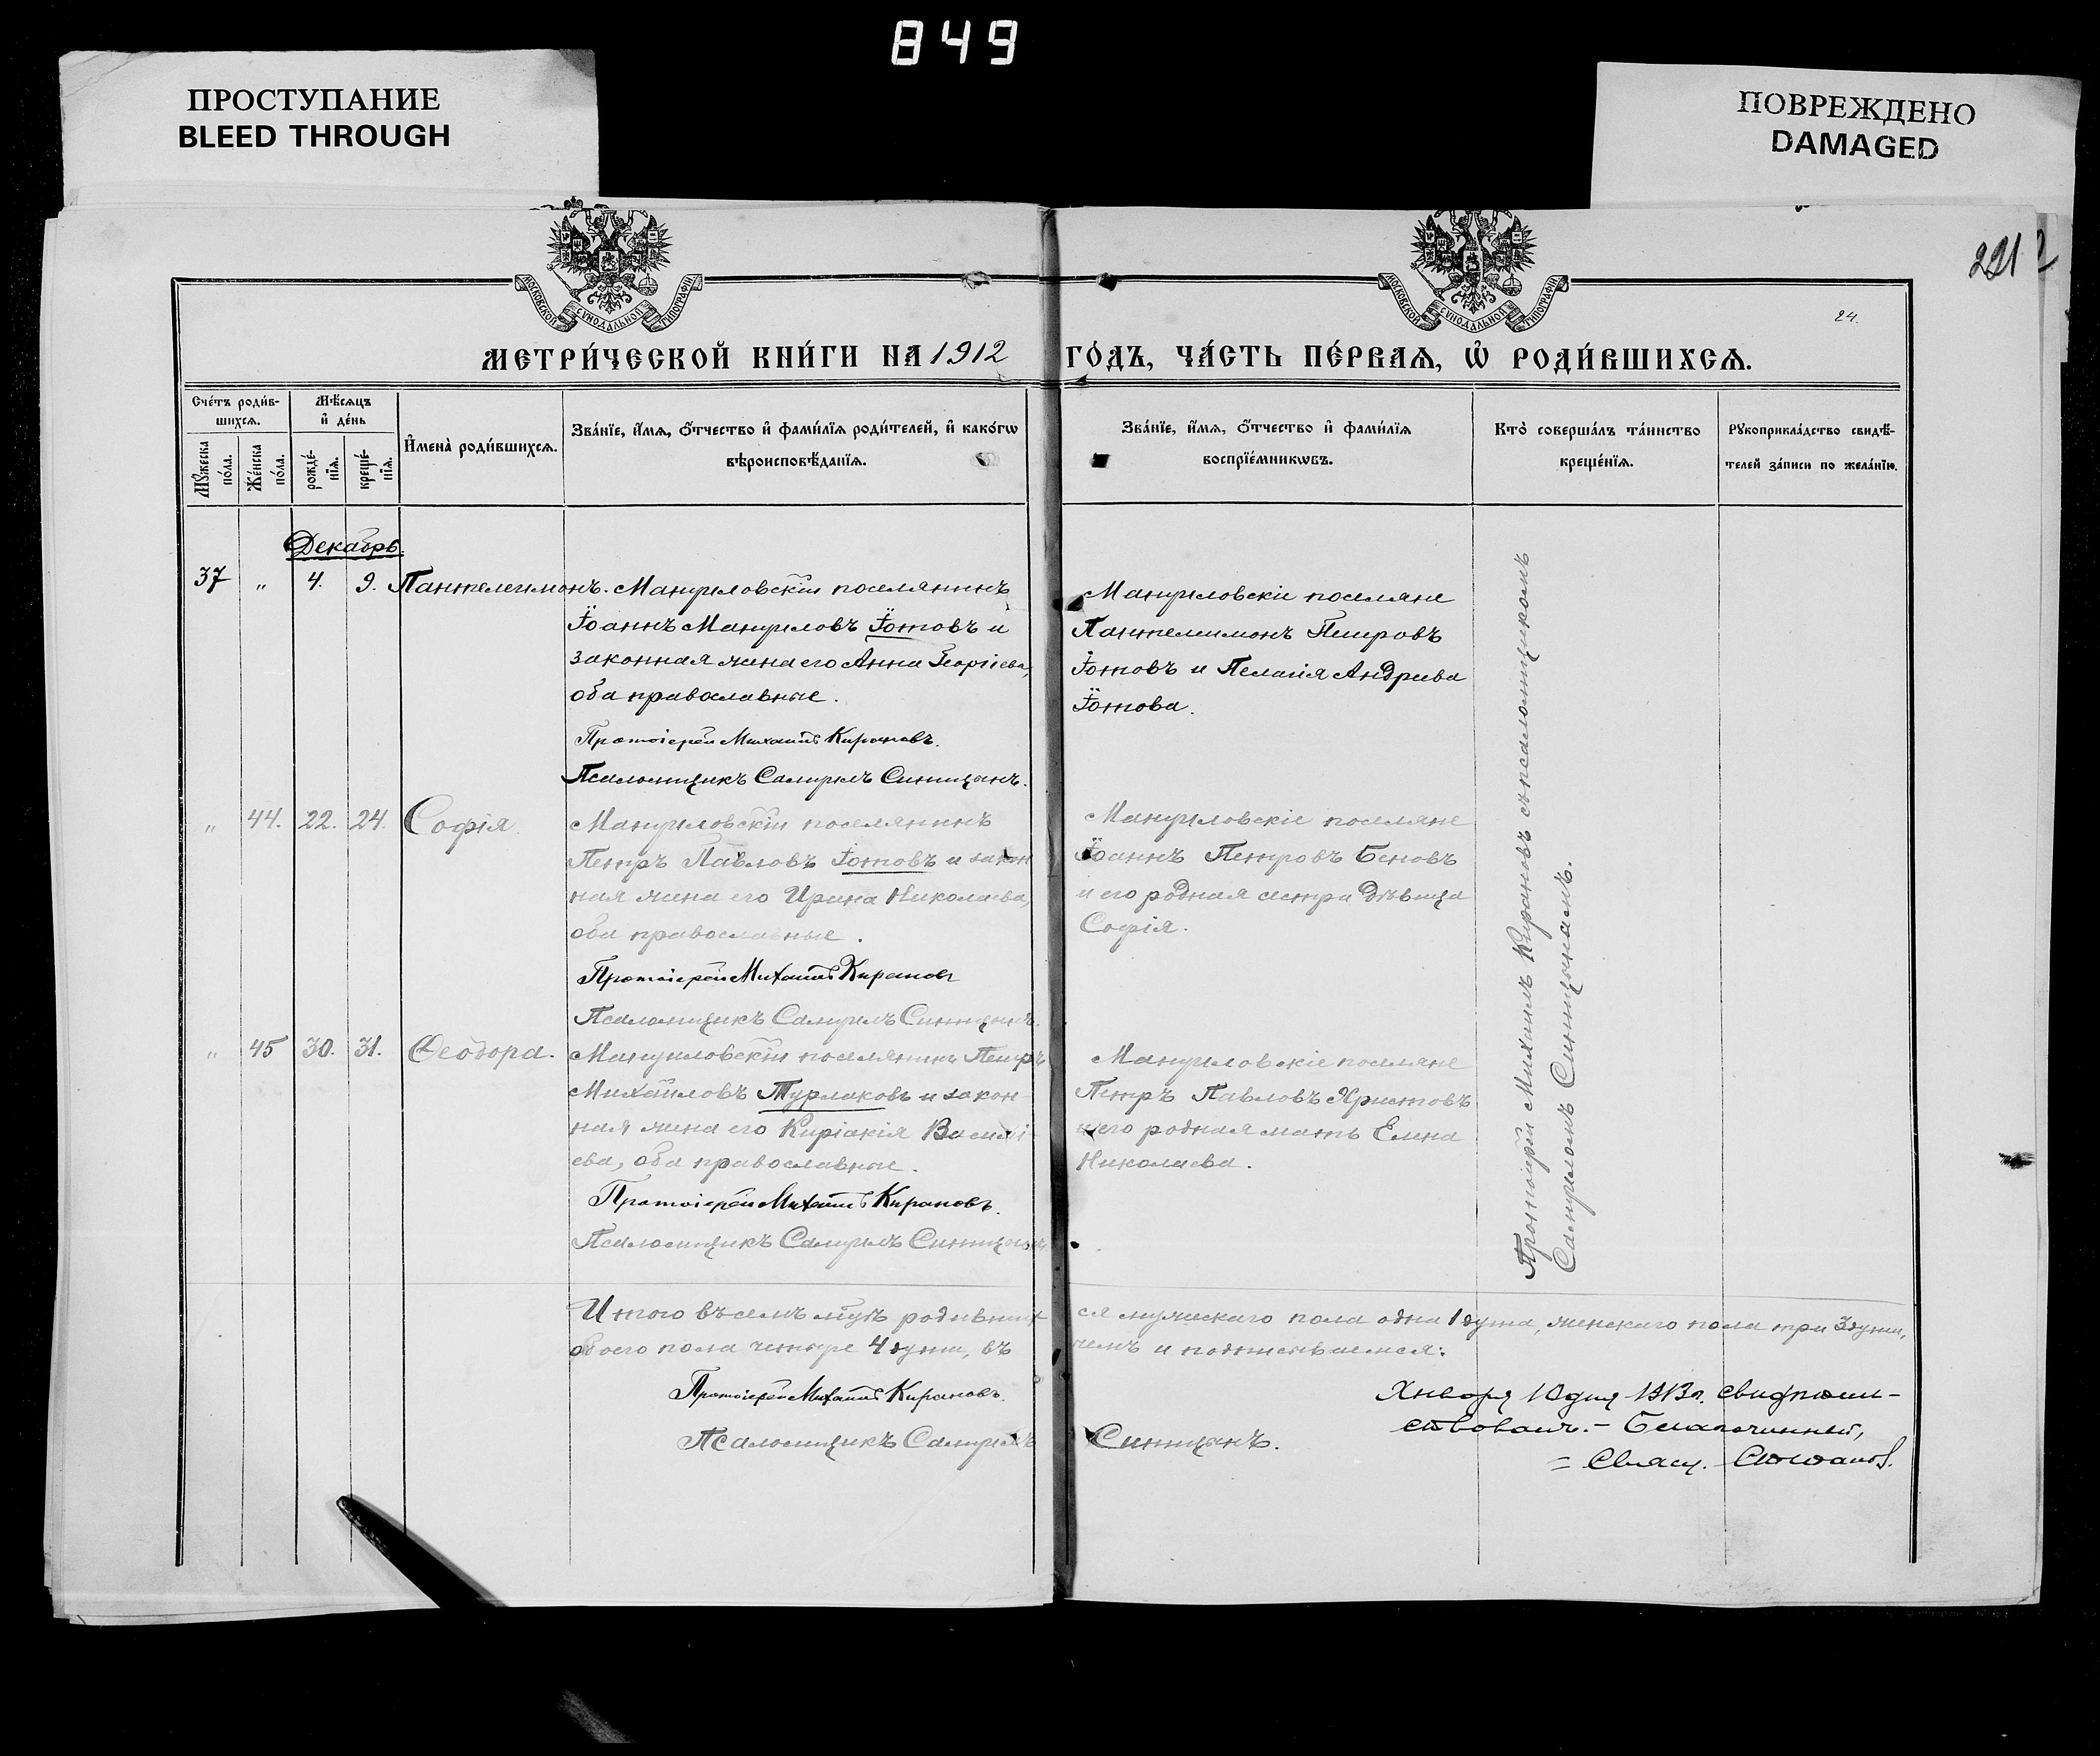 849
ПРОСТУПАНИЕ
BLEED THROUGH
ПОВРЕЖДЕНО
DAMAGED
2212
24.
МОСКОВСКОЙ СУНОДАЛЬНОЙ ТИПОГРАФІИ
МОСКОВСКОЙ СУНОДАЛЬНОЙ ТИПОГРАФІИ
МЕТРИ́ЧЕСКОЙ КНИ́ГИ НА 1912 ГО́ДЪ, ЧА́СТЬ ПЕ́РВАѦ, Ѡ РОДИ́ВШИХСѦ.
Сче́тъ роди́в-
шихсѧ.
Мꙋжеска по́ла.
Же́нска по́ла.
Мѣ́сѧцъ
и҆ де́нь
рожде́-
нїѧ.
креще́-
нїѧ.
И҆мена̀ роди́вшихсѧ.
Зва́нїе, и҆́мѧ, ѻ҆́тчество и҆ фами́лїѧ роди́телей, и҆ како́гѡ
вѣроисповѣ́данїѧ.
Зва́нїе, и҆́мѧ, ѻ҆́тчество и҆ фами́лїѧ
воспрїе́мникѡвъ.
Кто̀ соверша́лъ та́инство
креще́нїѧ.
Рꙋкоприкла́дство свидѣ́-
телей за́писи по жела́нїю.
Декабрь.
37 „ 4. 9. Пантелеимонъ. Мануиловскій поселянинъ
Іоаннъ Мануиловъ Іотовъ и
законная жена его Анна Георгіева,
оба православные.
Протоіерей Михаилъ Кирановъ.
Псаломщикъ Самуилъ Синицынъ.
Мануиловскіе поселяне
Пантелеимонъ Петровъ
Іотовъ и Пелагія Андреева
Іотова.
„ 44. 22. 24. Софія. Мануиловскій поселянинъ
Петръ Павловъ Іотовъ и закон
ная жена его Ирина Николаева,
оба православные.
Протоіерей Михаилъ Кирановъ
Псаломщикъ Самуилъ Синицынъ.
Мануиловскіе поселяне
Іоаннъ Петровъ Беновъ
и его родная сестра дѣвица
Софія.
„ 45 30. 31. Ѳеодора. Мануиловскій поселянинъ Петръ
Михайловъ Турлаковъ и закон
ная жена его Киріакія Василі-
ева, оба православные.
Протоіерей Михаилъ Кирановъ.
Псаломщикъ Самуилъ Синицынъ
Мануиловскіе поселяне
Петръ Павловъ Христовъ
и его родная мать Елена
Николаева.
Протоіерей Михаилъ Кирановъ съ псаломщикомъ
Самуиломъ Синицынымъ.
Итого въ семъ м͠цѣ родившихся мужескаго пола одна 1 душа, женскаго пола три 3 души,
обоего пола четыре 4 души, въ чемъ и подписываемся:
Протоіерей Михаилъ Кирановъ.
Псаломщикъ Самуилъ Синицынъ.
Января 10 дня 1913 г. Свидѣтель-
ствовалъ. – Благочинный,
= Свящ.